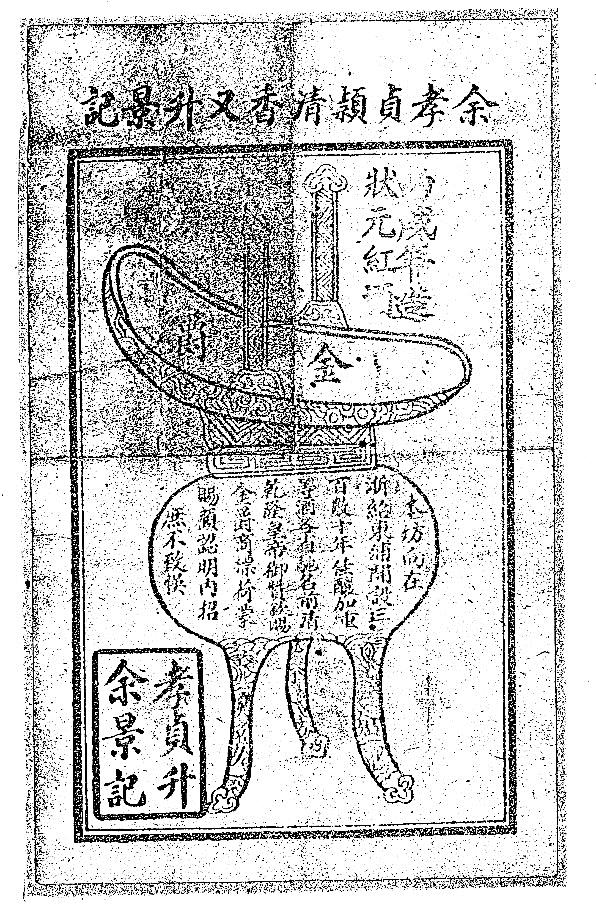 余孝貞穎清香又升景記
戌年造
狀元紅
金爵
本坊向在
浙紹東浦開設三
百數十年佳釀加重
酒各省馳名前清
乾隆皇帝御賜
金爵商標荷蒙
賜顧認明內招
庶不致悞
孝貞升
余景記